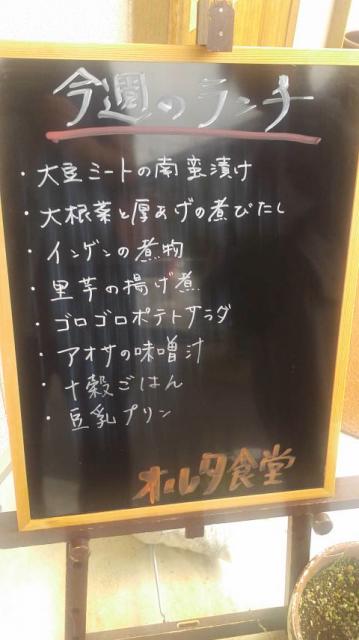 今週のランチ
・大豆ミートの南蛮漬け
・大根葉と厚あげの煮びたし
・インゲンの煮物
・里芋の揚げ煮
・ゴロゴロポテトサラダ
・アオサの味噌汁
・十穀ごはん
・豆乳プリン
オルタ食堂